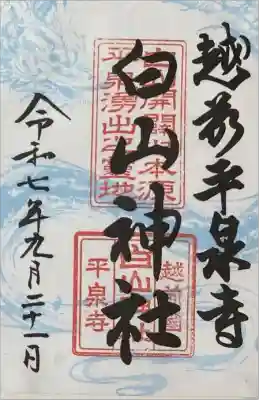 越前平泉寺
白山神社
令和七年九月二十一日
開闢 本源
平泉湧出之靈地
越前國
白山神社
平泉寺